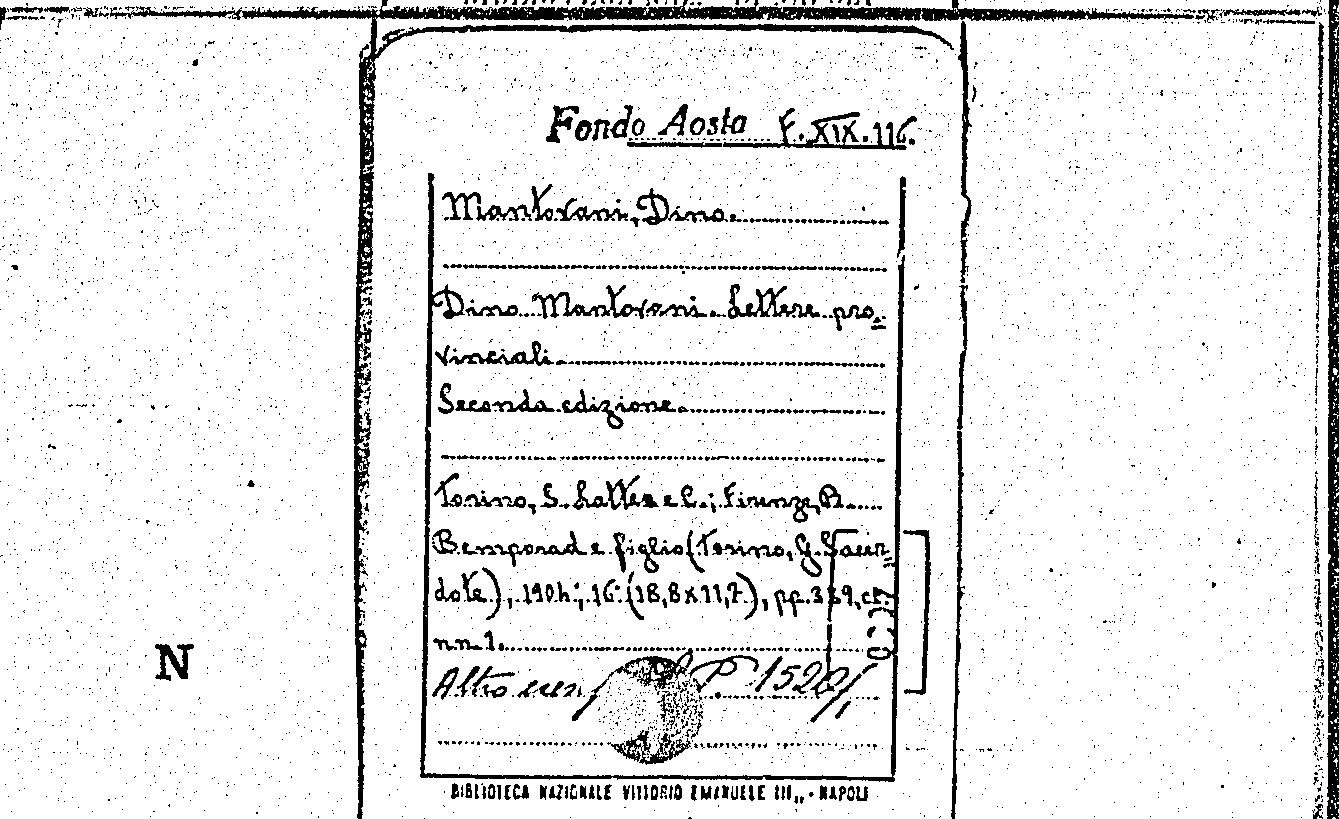 Fondo Aosta F.XIX.116.
Mantovani, Dino.
Dino Mantovani. Lettere pro=
vinciali.
Seconda edizione.
Torino, S. Lattes e C.; Firenze, R.
Bemporad e figlio (Torino, G. Sacer=
dote), 1904; 16° (18,8x11,7), pp. 339, c.
nn. 1.
Altro esem P 152
N
BIBLIOTECA NAZIONALE VITTORIO EMANUELE III„ - NAPOLI